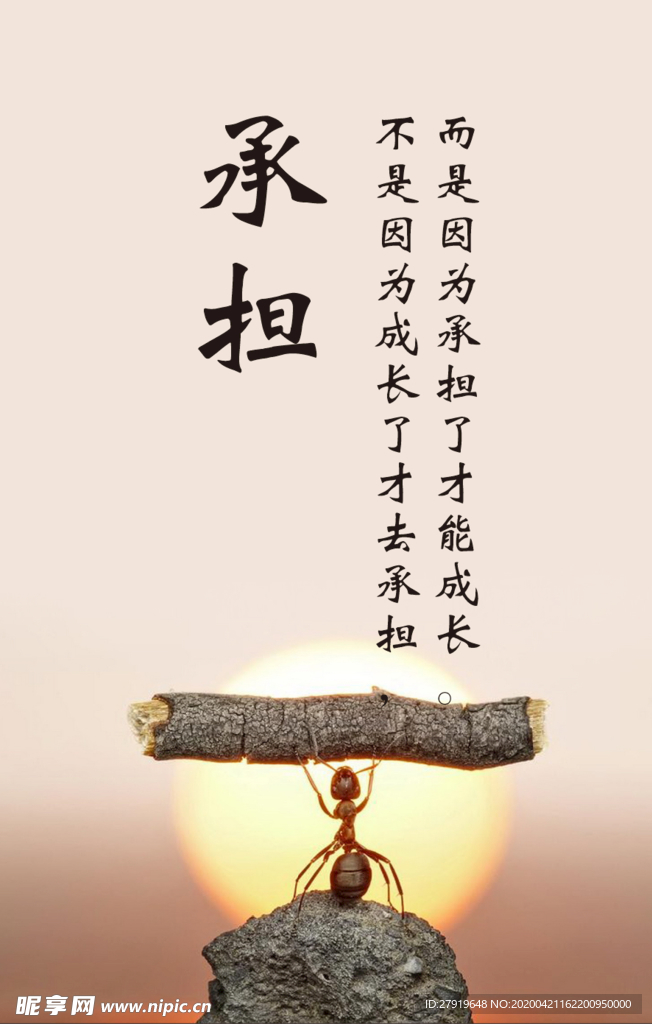 承担
不是因为成长了才去承担，
而是因为承担了才能成长。
昵享网 www.nipic.cn
ID:27919648 NO:20200421162200950000